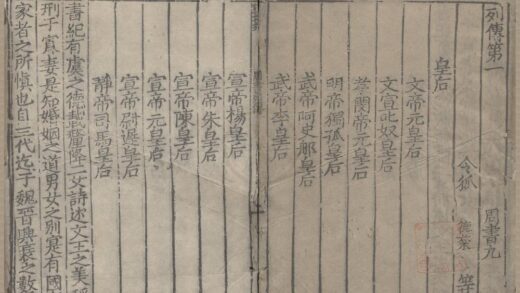 列傳第一 周書九
令狐 德棻 等
皇后
文帝元皇后
文宣叱奴皇后
孝閔帝元皇后
明帝獨孤皇后
武帝阿史那皇后
武帝李皇后
宣帝楊皇后
宣帝朱皇后
宣帝陳皇后
宣帝元皇后
宣帝尉遲皇后
靜帝司馬皇后
書紀有虞之德載釐降二女詩述文王之美
刑于寡妻是知婚姻之道男女之別寔有國
家者之所慎也自三代迄于魏晉興衰之數